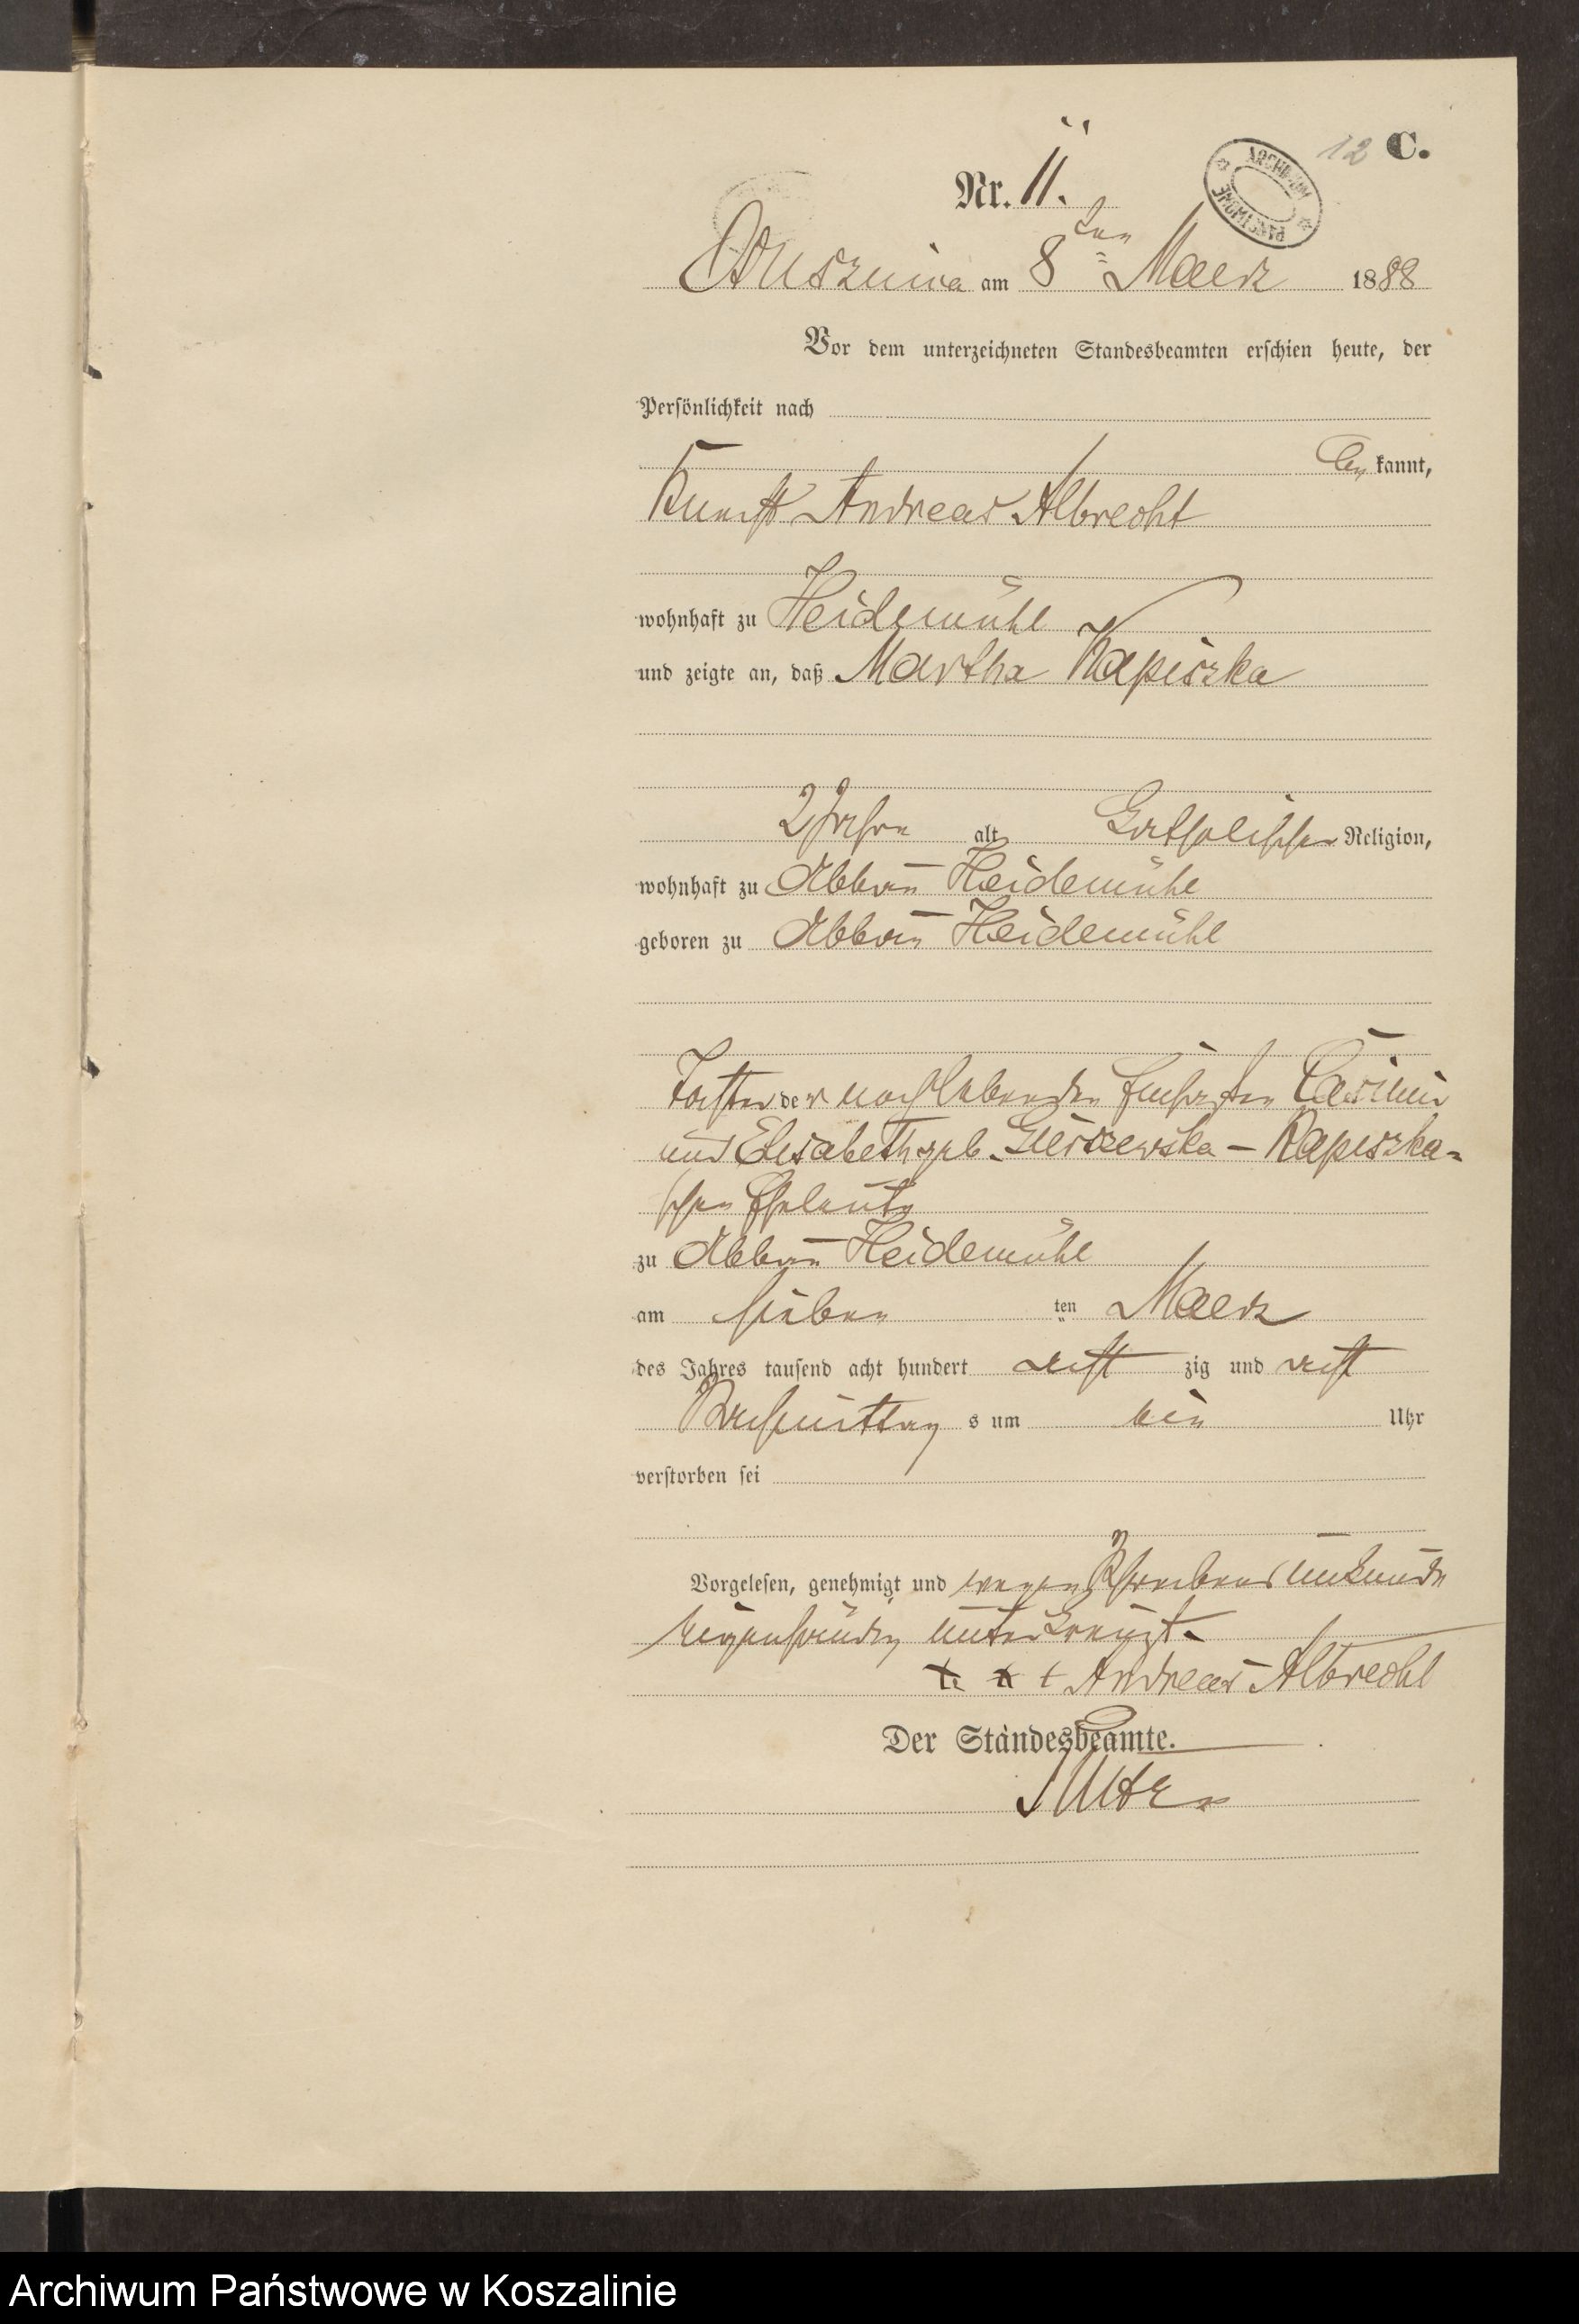 12 C.
ARCHIWUM PAŃSTWOWE
Nr. 11.
am 8ten Maerz 1888
Vor dem unterzeichneten Standesbeamten erschien heute, der
Persönlichkeit nach
be kannt,
Andreas Albrecht
wohnhaft zu Heidemühl
und zeigte an, daß Martha Kapiszka
2 Jahre alt katholischer Religion,
wohnhaft zu Abbau Heidemühl
geboren zu Abbau Heidemühl
Tochter der noch lebenden Casimir
und Elisabeth geb. – Kapiszka-
schen Eheleute
zu Abbau Heidemühl
am sieben ten Maerz
des Jahres tausend acht hundert acht zig und acht
Nachmittag s um ein Uhr
verstorben sei
Vorgelesen, genehmigt und wegen Schreibens unkunde
eigenhändig unterkreuzt.
+ + + Andreas Albrecht
Der Standesbeamte.
Archiwum Państwowe w Koszalinie